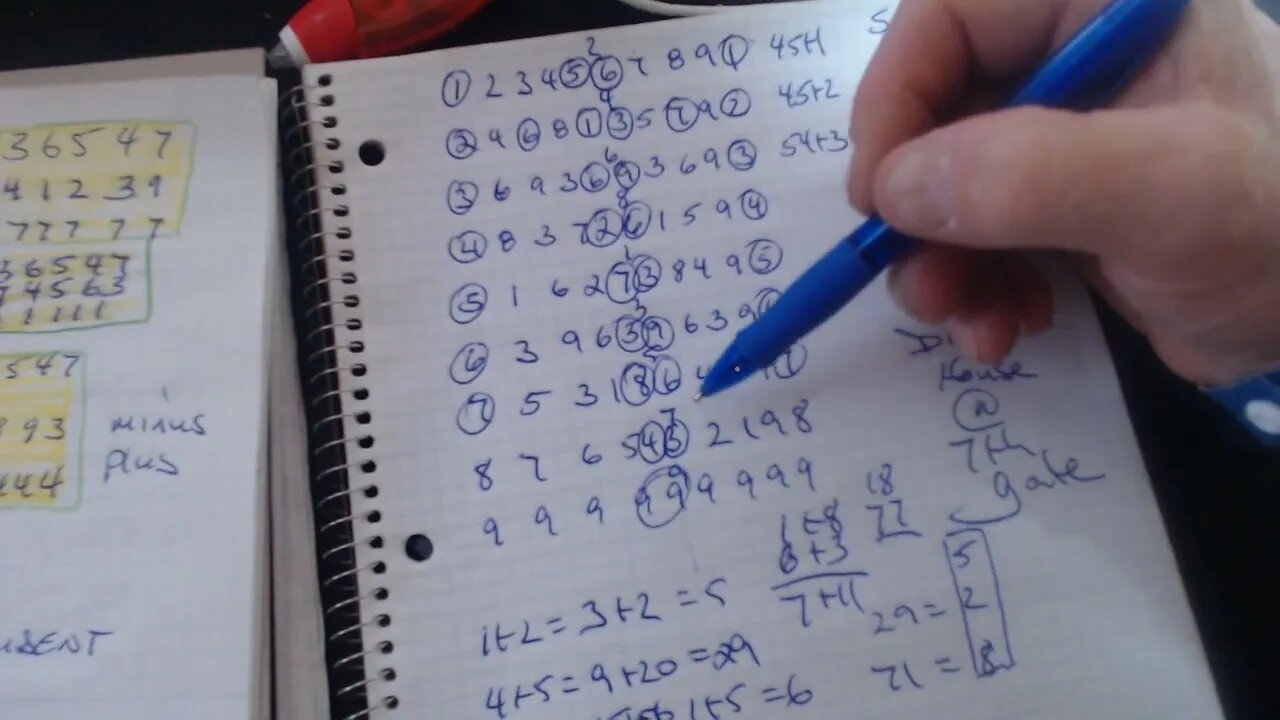 36547
41239
77777
36547
74563
11111
547
893
444
minus
plus
2
1 2 3 4 5 6 7 8 9 1 45+1
4
2 4 6 8 1 3 5 7 9 2 45+2
6
3 6 9 3 6 9 3 6 9 3 54+3
8
4 8 3 7 2 6 1 5 9 4
1
5 1 6 2 7 3 8 4 9 5
3
6 3 9 6 3 9 6 3 9
5
7 5 3 1 8 6 4
7
8 7 6 5 4 3 2 1 9 8
9
9 9 9 9 9 9 9 9 9
House
@
7th
gate
1+8 18
6+3 77
7+11
1+2=3+2=5
4+5=9+20=29
1+5=6
5
29= 2
71= 8